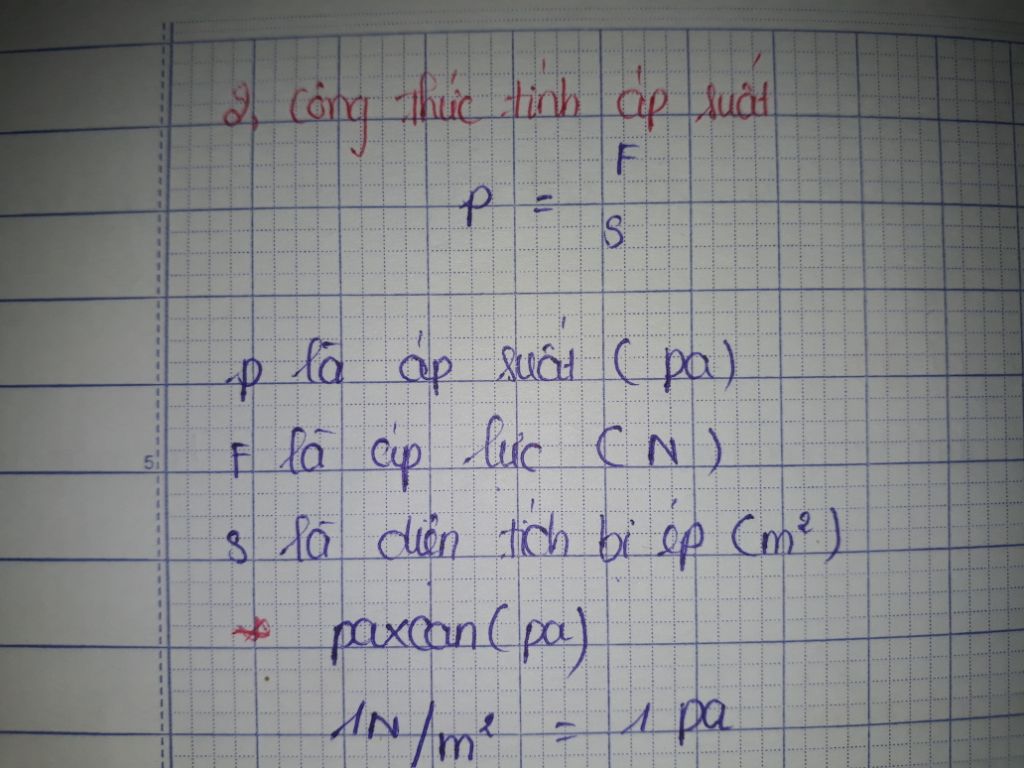 2, Công thức tính áp suất
F
p =
S
p là áp suất (pa)
F là áp lực (N)
5
S là diện tích bị ép (m²)
* paxcan (pa)
1N/m² = 1 pa